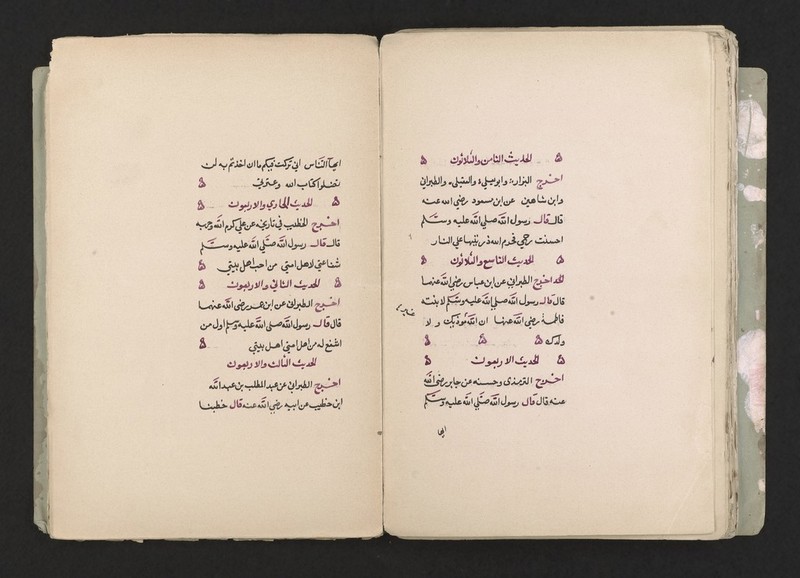 الحديث الثامن والثلاثون
اخرج البزار وابو يعلى والعقيلي والطبراني
وابن شاهين عن ابن مسعود رضي الله عنه
قال قال رسول الله صلى الله عليه وسلم
احصنت فرحم الله ذريتها على النار
الحديث التاسع والثلاثون
اخرج الطبراني عن ابن عباس رضي الله عنهما
قال قال رسول الله صلى الله عليه وسلم لابنته
فاطمة رضي الله عنها ان الله معذبك ولا
ولدك
الحديث الاربعون
اخرج الترمذي وحسنه عن جابر رضي الله
عنه قال قال رسول الله صلى الله عليه وسلم
ايها
ايها الناس اني تركت فيكم ما ان اخذتم به لن
تضلوا كتاب الله وعترتي
الحديث الحادي والاربعون
اخرج الخطيب في تاريخه عن علي كرم الله وجهه
قال قال رسول الله صلى الله عليه وسلم
شفاعتي لامتي من احب اهل بيتي
الحديث الثاني والاربعون
اخرج الطبراني عن ابن عمر رضي الله عنهما
قال قال رسول الله صلى الله عليه وسلم اول من
اشفع له من امتي اهل بيتي
الحديث الثالث والاربعون
اخرج الطبراني عن عبد المطلب بن عبد الله
ابن حنطب عن ابيه رضي الله عنه قال خطبنا